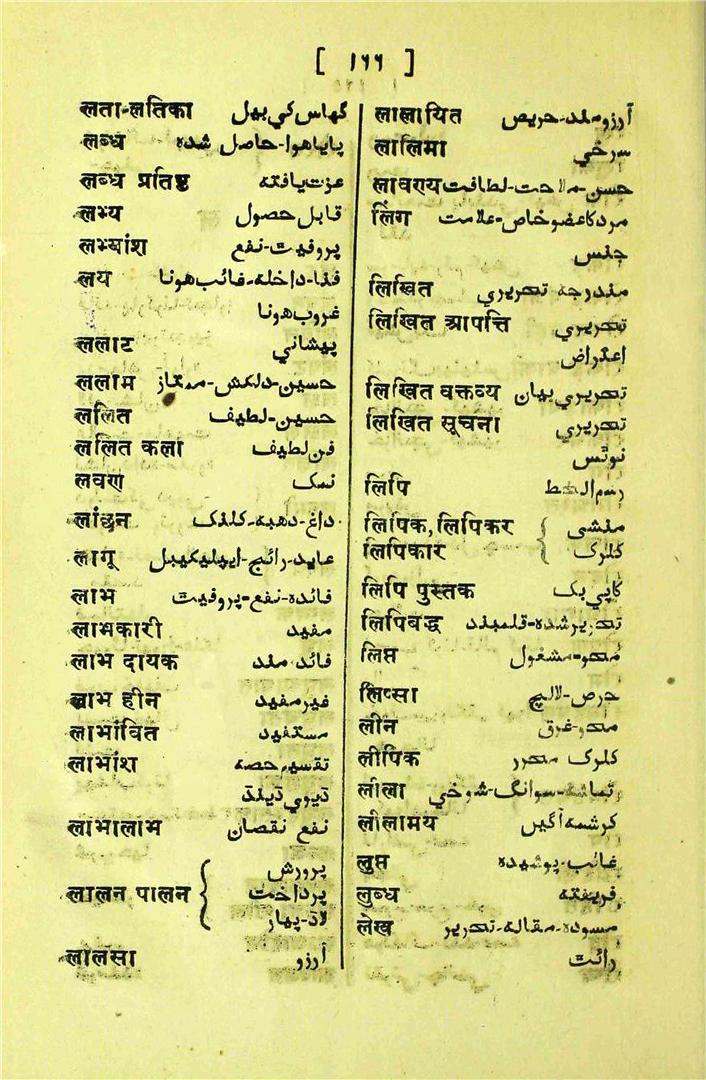 [ ۱۶۶ ]
लता-लतिका گھاس کي بھل
लब्ध پایا ھوا-حاصل شدہ
लब्ध प्रतिष्ठ عزت یافتہ
लभ्य قابل حصول
लभ्यांश پروفیت-نفع
लय فنا-داخلہ-غائب ھونا
غروب ھونا
ललाट پیشاني
ललाम حسین-دلکش-ممتاز
ललित حسین-لطیف
ललित कला فن لطیف
लवण نمک
लांछन داغ-دھبہ-کلنک
लागू عاید-رائج-ایپلیکیبل
लाभ فائدہ-نفع-پروفیت
लाभकारी مفید
लाभ दायक فائد مند
लाभ हीन غیر مفید
लाभांवित مستفید
लाभांश تقسیم حصہ
ڈیوي ڈیلڈ
लाभालाभ نفع نقصان
लालन पालन { پرورش
پرداخت
لاڈ-پھار
लालसा آرزو
लालायित آرزو مند-حریص
लालिमा سرخي
लावण्य حسن-ملاحت-لطافت
लिंग مرد کا عضو خاص-علامت
جنس
लिखित مندرجہ تحریري
लिखित आपत्ति تحریري
اعتراض
लिखित वक्तव्य تحریري بیان
लिखित सूचना تحریري
نوٹس
लिपि رسم الخط
लिपिक, लिपिकर { منشی
लिपिकार کلرک
लिपि पुस्तक کاپي بک
लिपिबद्ध تحریر شدہ-قلمبند
लिप्त محو-مشغول
लिप्सा حرص-لالچ
लीन محو-غرق
लीपिक کلرک محرر
लीला تماشہ-سوانگ-شوخي
लीलामय کرشمہ آگیں
लुप्त غائب-پوشیدہ
लुब्ध فریفتہ
लेख مسودہ-مقالہ-تحریر
رائٹ